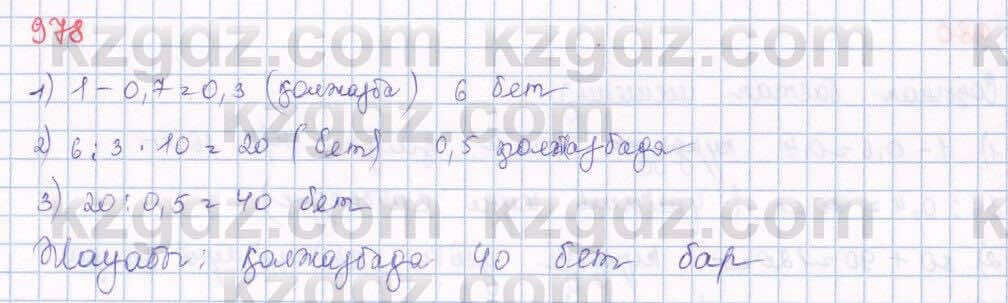 978
1) 1 - 0,7 = 0,3 (қолжазба) 6 бет
2) 6 : 3 · 10 = 20 (бет) 0,5 қолжазбада
3) 20 : 0,5 = 40 бет
Жауабы: қолжазбада 40 бет бар
kzgdz.com kzgdz.com
kzgdz.com kzgdz.com
kzgdz.com kzgdz.com